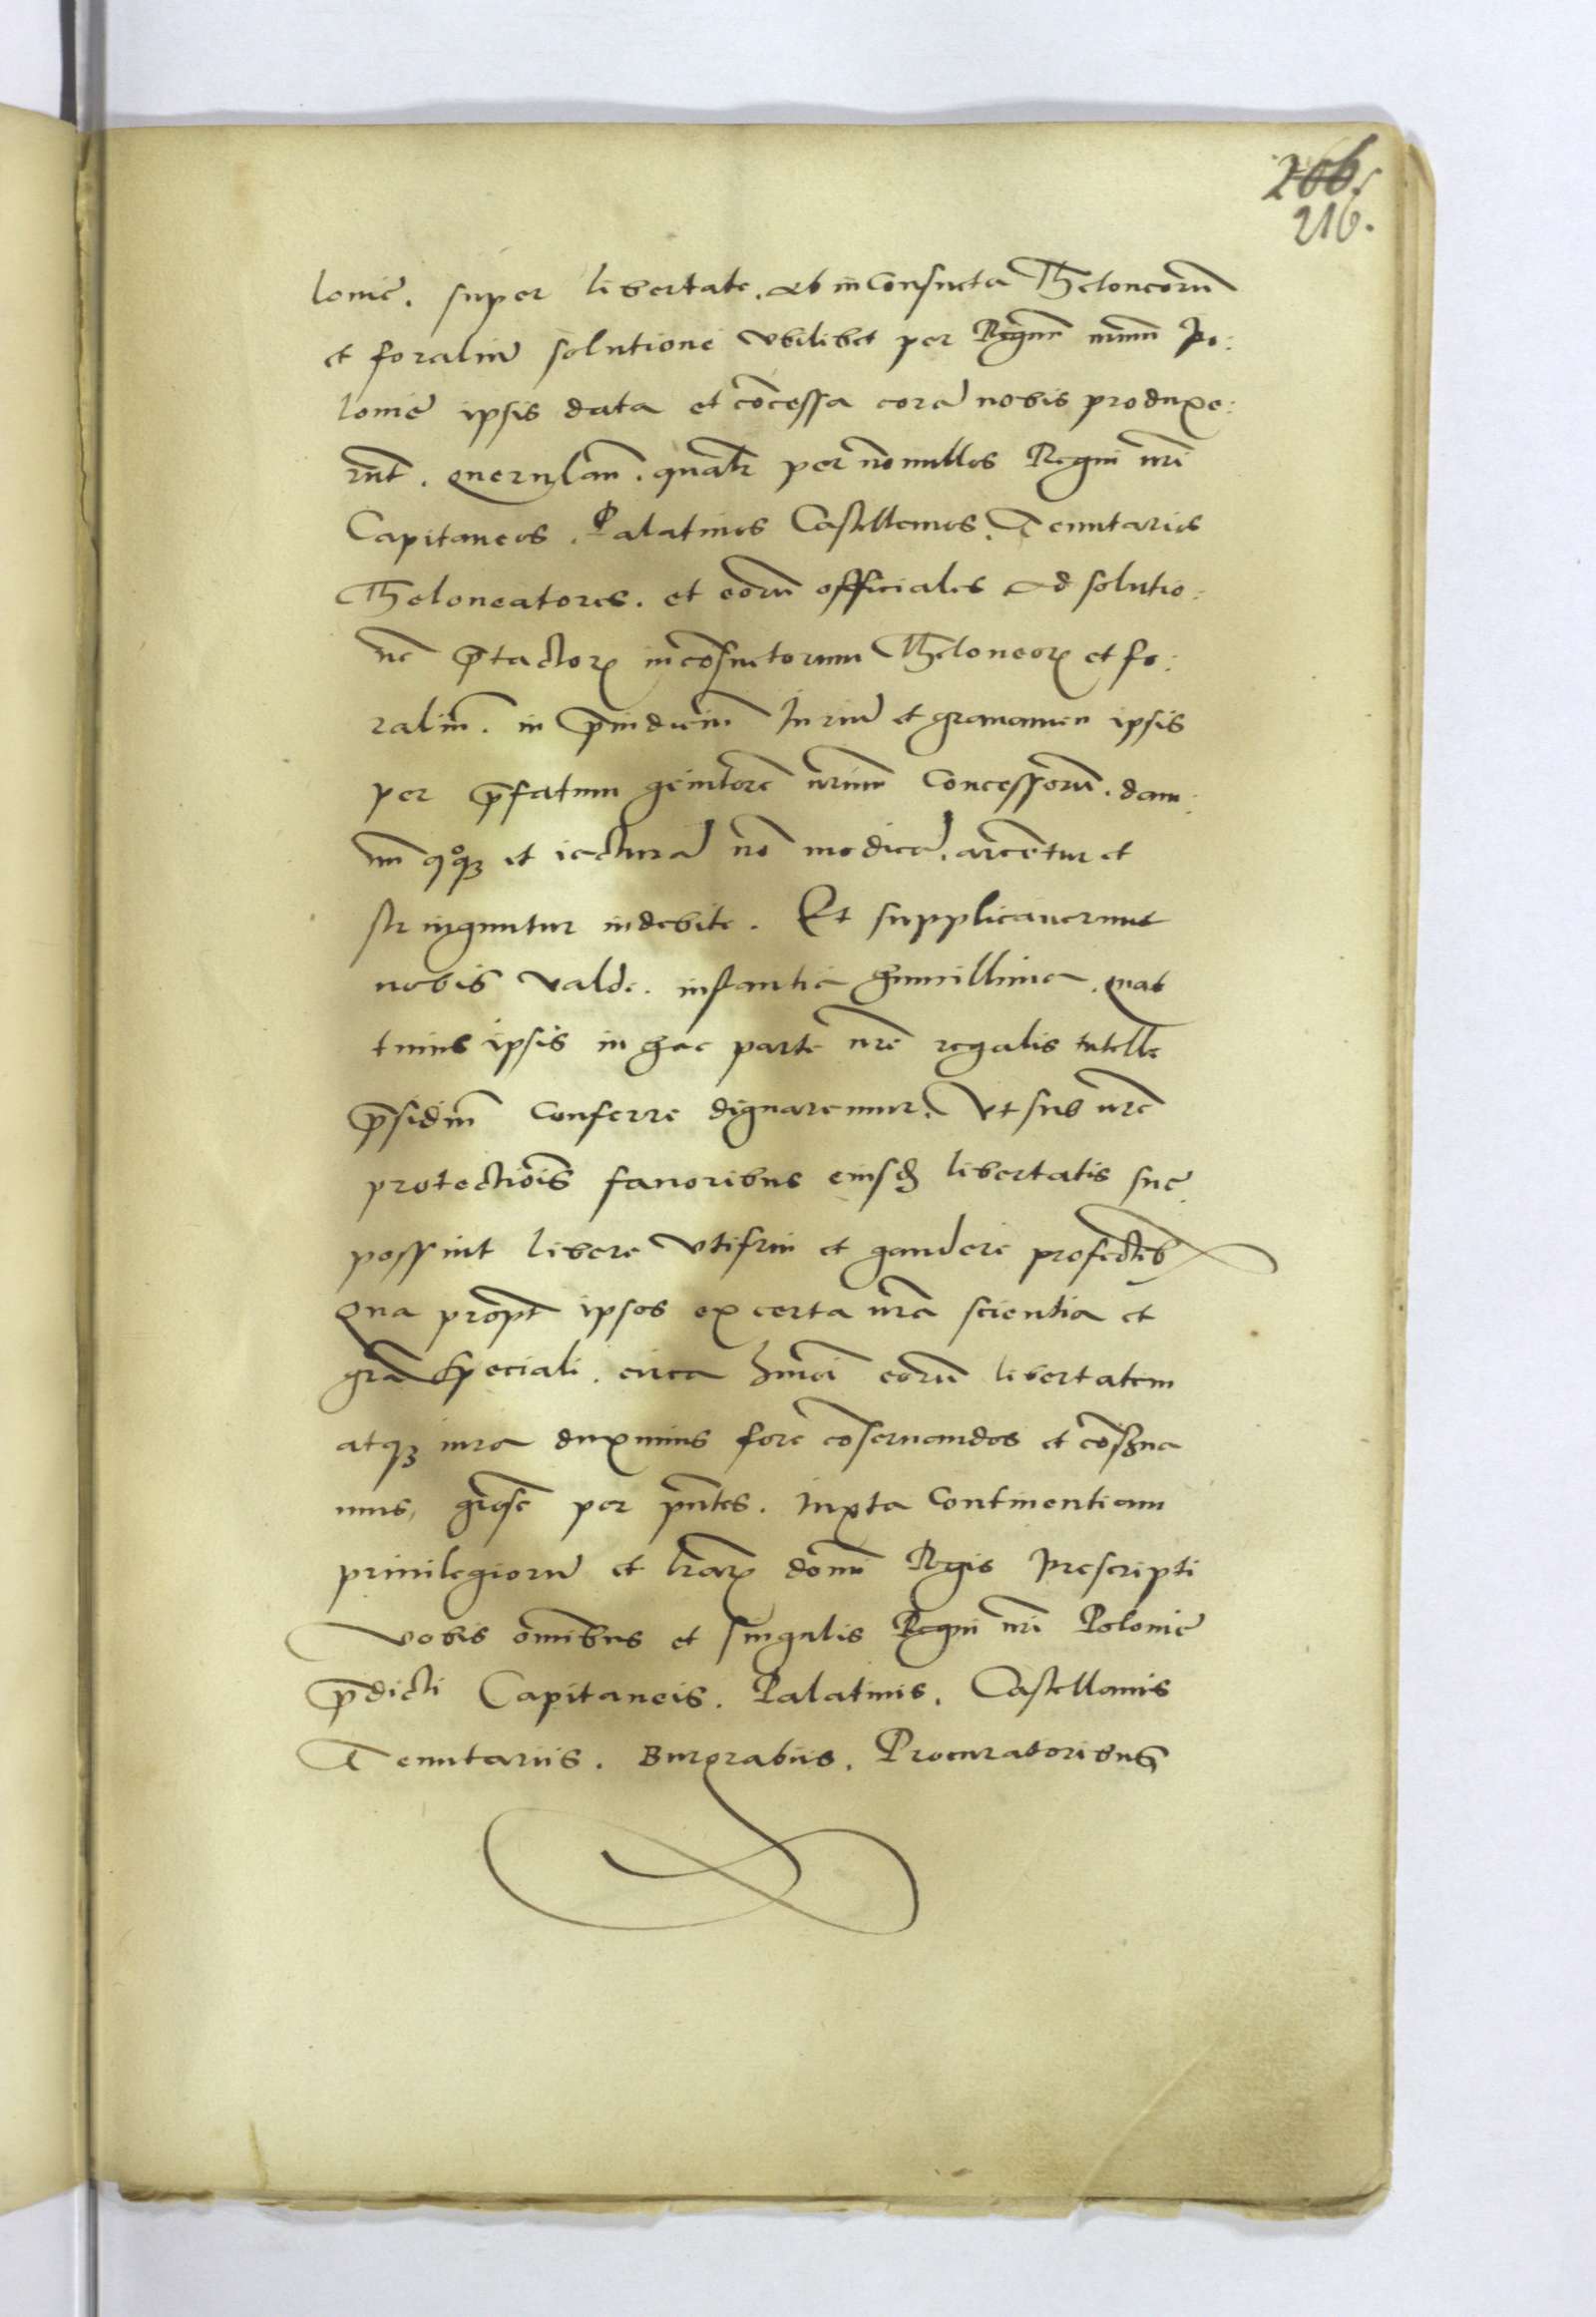 206.
216.
loniẽ. super libertate. ab inconsueta Theloneorũ
et foraliũ solutione vbilibet per Regnũ nrũm Po:
loniẽ ipsis data et cõcessa corã nobis produxe:
rũt. querulañ. qualr̃ per nõnullos Regni nr̃i
Capitaneos. Palatinos Castellanos. Tenutarios
Theloneatores. et eorũ officiales ad solutio:
nẽ p̃tactoꝝ incõsuetorum Theloneoꝝ et fo:
raliũ. in p̃iudiciũ Iuriũ et grauamen ipsis
per p̃fatum genitorẽ nrũm concessorũ. dam:
nũ qoqꝫ et iacturã nõ modicã. arcẽtur et
stringuntur indebite. Et supplicauerunt
nobis valde. instantia humillima. quat
tinus ipsis in hac parte nr̃e regalis tutelle
p̃sidiũ conferre dignaremur. Vt sub nr̃e
protectiõis fauoribus eiusd̃ libertatis suẽ
possint libere vtifrui et gaudere profectib
Qua propt̃ ipsos ex certa nr̃a scientia et
grã speciali. circa hmõi eorũ libertatem
atqꝫ iura duximus forẽ cõseruandos et cõserua
mus, griosẽ per pñtes. Iuxta continentiam
priuilegiorũ et lr̃aꝝ domĩ Regis Prescripti
Vobis omĩbus et singulis Regni nr̃i Poloniẽ
p̃dicti Capitaneis. Palatinis. Castellanis
Tenutariis. Burgrabiis. Procuratoribus